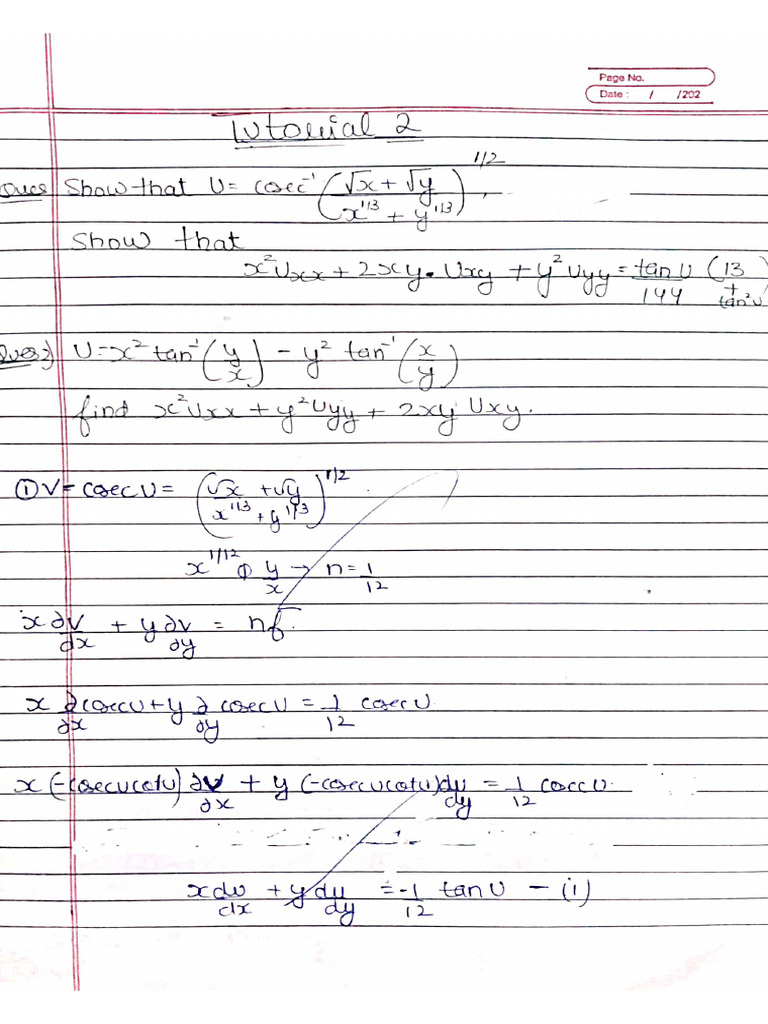 Page No.
Date : / /202
Tutorial 2
Ques Show that U = cosec⁻¹ (√x + √y / x^1/3 + y^1/3)^1/2,
Show that
x²Uxx + 2xy·Uxy + y²Uyy = tanU/144 (13 + tan²U
Ques2) U = x² tan⁻¹ (y/x) - y² tan⁻¹ (x/y)
find x²Uxx + y²Uyy + 2xy Uxy.
① V = cosecU = (√x + √y / x^1/3 + y^1/3)^1/2.
x^1/12 φ y/x → n = 1/12
x ∂V/∂x + y ∂V/∂y = nf.
x ∂/∂x cosecU + y ∂/∂y cosecU = 1/12 cosecU
x (-cosecucotu) ∂U/∂x + y (-cosecucotu) du/dy = 1/12 cosecU.
x du/dx + y du/dy = -1/12 tanU - (1)